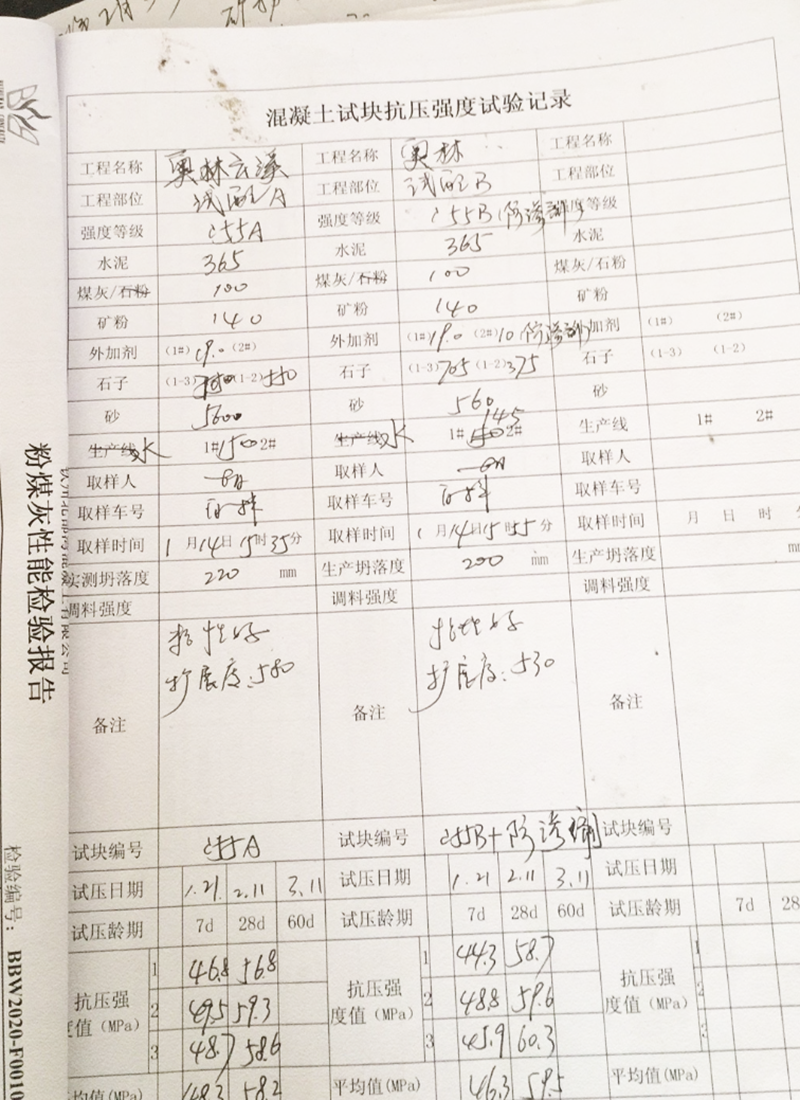 混凝土试块抗压强度试验记录
工程名称 奥林云溪 工程名称 奥林 工程名称
工程部位 试配A 工程部位 试配B 工程部位
强度等级 C55A 强度等级 C55B(防渗剂) 强度等级
水泥 365 水泥 365 水泥
煤灰/石粉 100 煤灰/石粉 100 煤灰/石粉
矿粉 140 矿粉 140 矿粉
外加剂 (1#) 19.0 (2#) 外加剂 (1#) 19.0 (2#) 10 防渗剂 外加剂 (1#) (2#)
石子 (1-3) (1-2) 550 石子 (1-3) 705 (1-2) 375 石子 (1-3) (1-2)
砂 5600 砂 560 砂
生产线 水 1# 150 2# 生产线 水 1# 145 2# 生产线 1# 2#
取样人 取样人 取样人
取样车号 自拌 取样车号 自拌 取样车号
取样时间 1月14日15时35分 取样时间 1月14日15时55分 取样时间 月 日 时 分
实测坍落度 220 mm 生产坍落度 200 mm 生产坍落度 mm
调料强度 调料强度 调料强度
备注 粘性好 备注 粘性好 备注
扩展度:580 扩展度:530
试块编号 C55A 试块编号 C55B+防渗剂 试块编号
试压日期 1.21 2.11 3.11 试压日期 1.21 2.11 3.11 试压日期
试压龄期 7d 28d 60d 试压龄期 7d 28d 60d 试压龄期 7d 28
抗压强度值(MPa) 抗压强度值(MPa) 抗压强度值(MPa)
1 46.8 56.8 1 44.3 58.7 1
2 49.5 59.3 2 48.8 59.6 2
3 48.7 58.6 3 45.9 60.3 3
平均值(MPa) 48.3 58.2 平均值(MPa) 46.3 59.5 平均值(MPa)
粉煤灰性能检验报告
检验编号: BBW2020-F0010